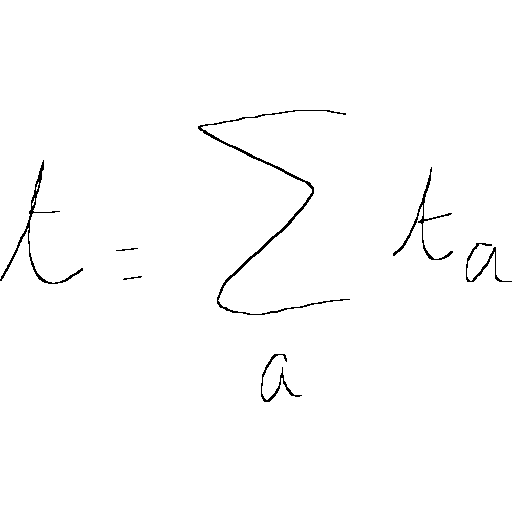 t = \sum_{a} t_{a}